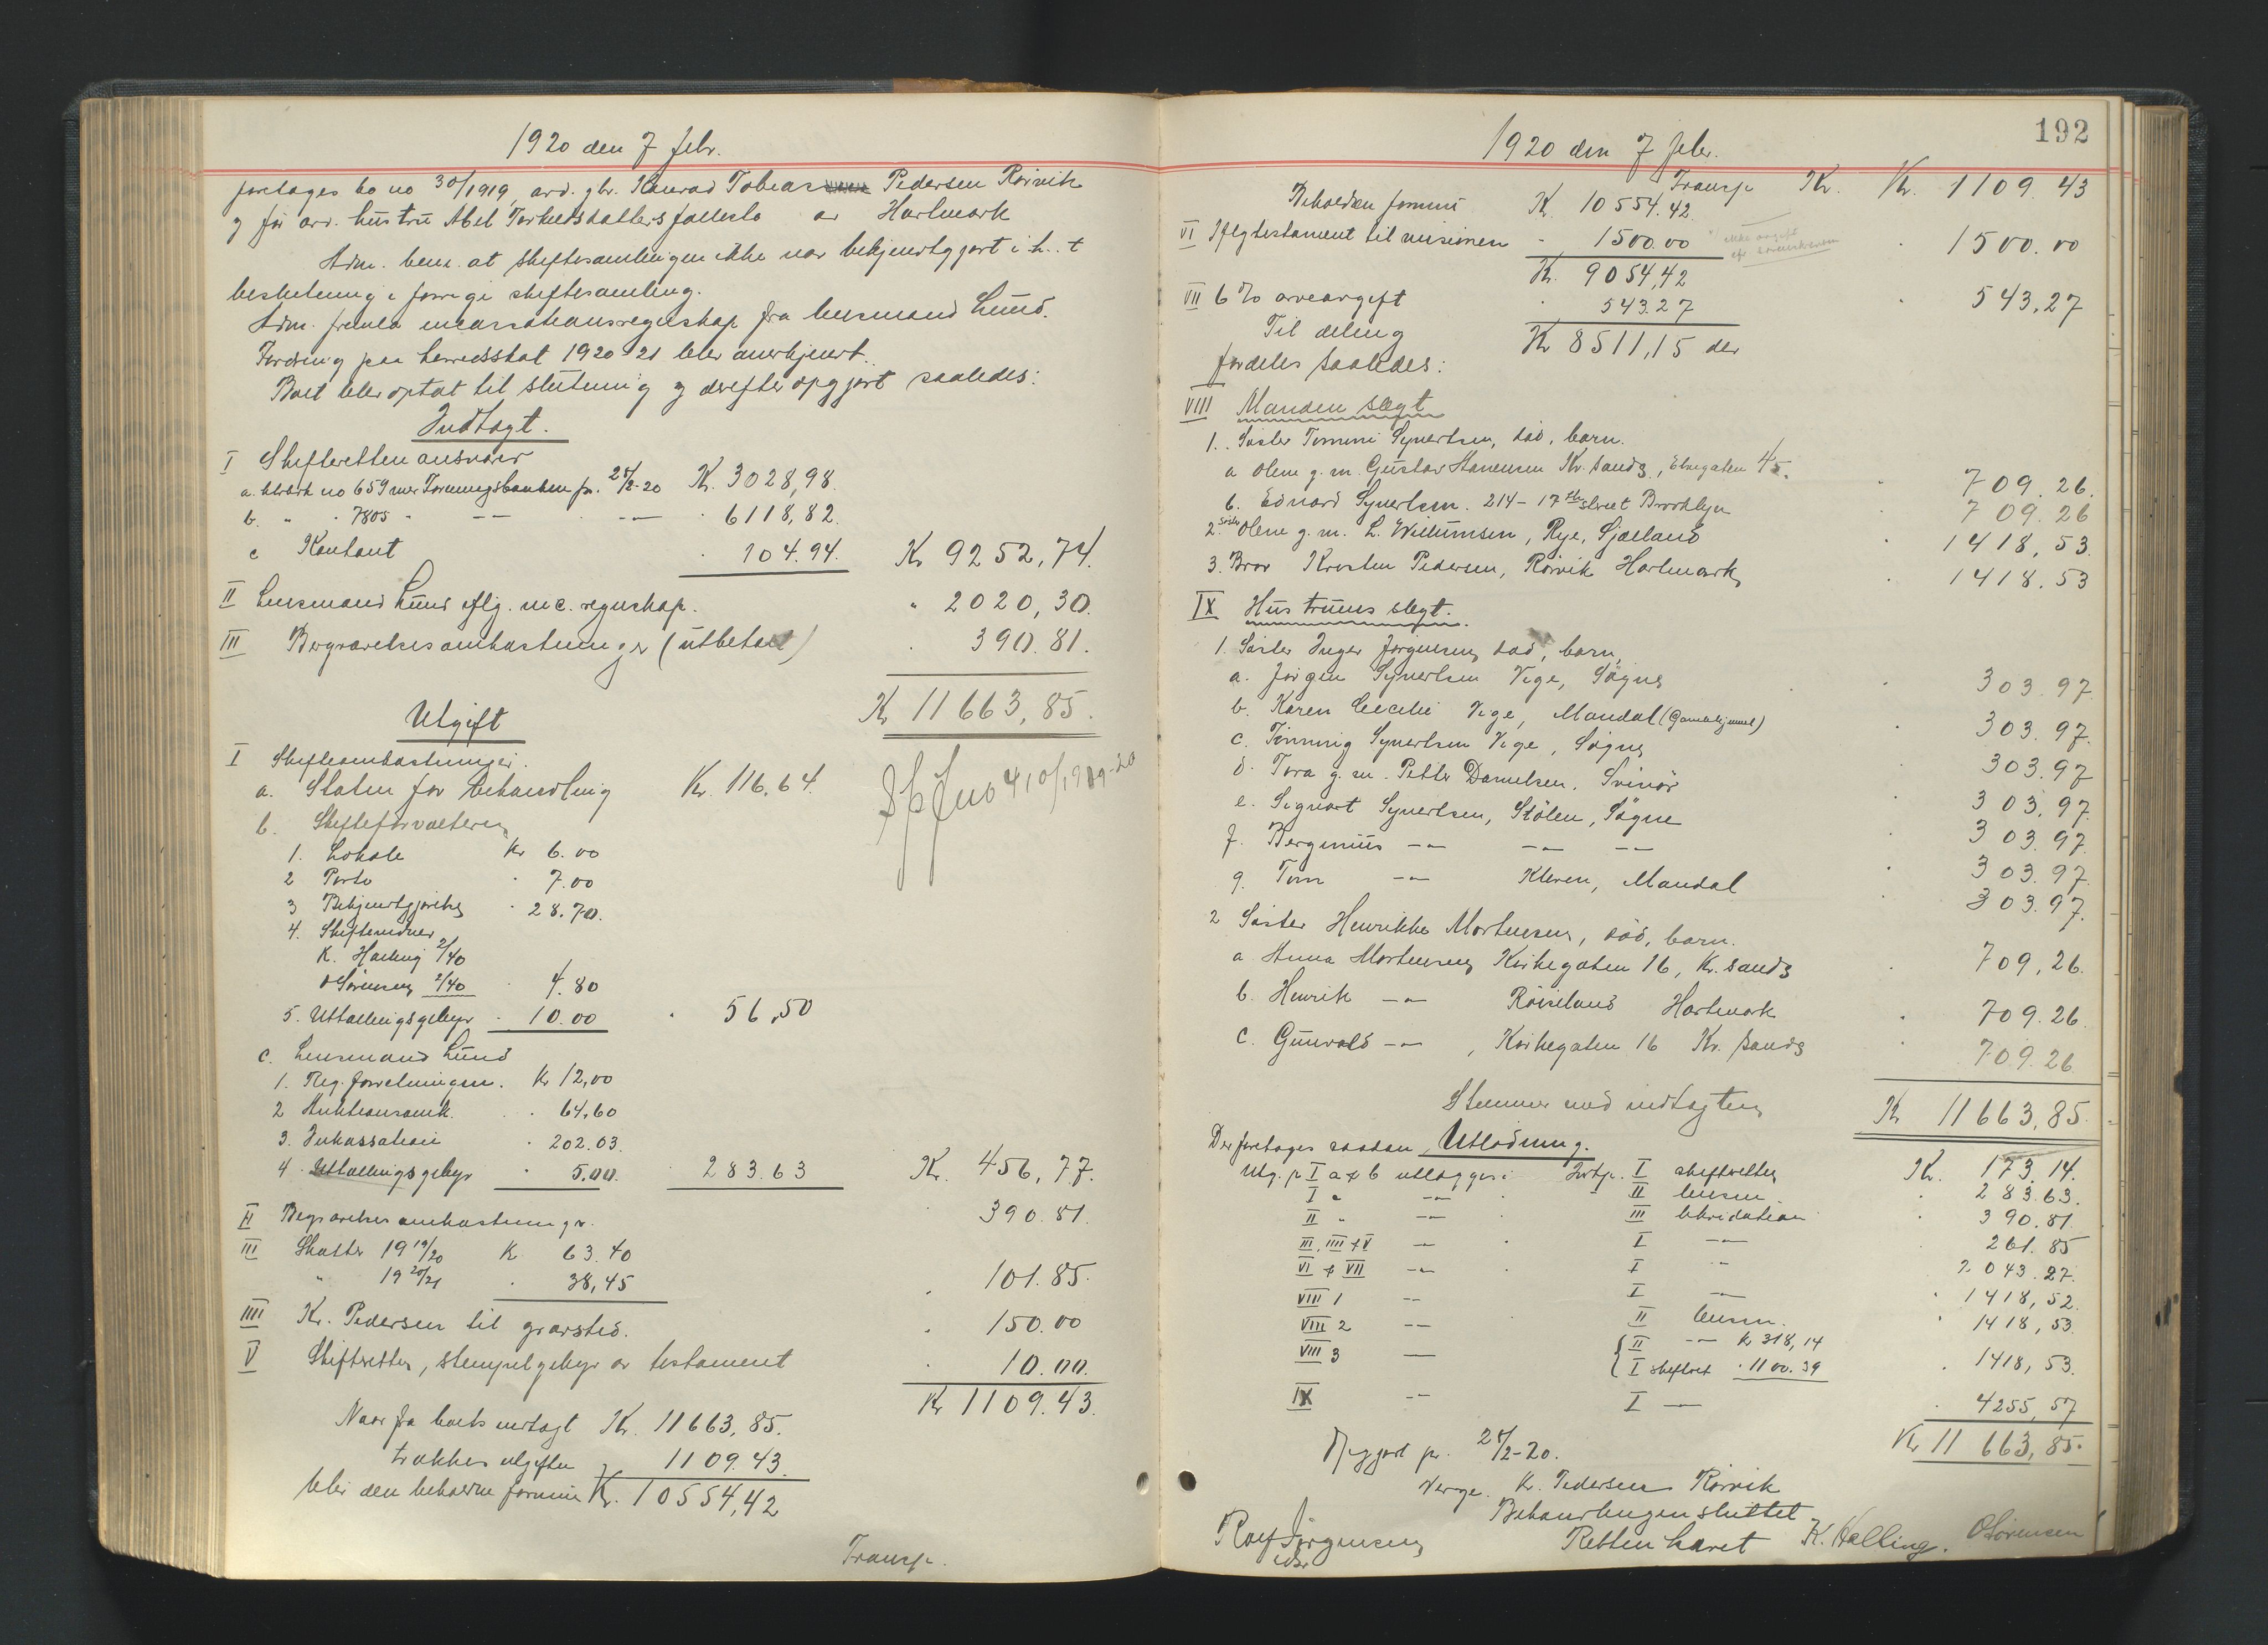 1920 den 7 febr.
foretages bo no 30/1919, avd. gbr. Konrad Tobias Pedersen Rörvik
og før avd. hustru Abel Torkeldsdatters fællesbo av Hartmark
Adm. bem. at skiftesamlingen ikke var bekjendtgjort i h. t
beslutning i forrige skiftesamling.
Adm. fremla incassationsregnskap fra lensmand Lund.
Fordring paa herredsskat 1920-21 blev anerkjendt.
Boet blev optat til slutning og derefter opgjort saaledes:
Indtægt.
I Skifteretten ansvarer
a. bankbok no 659 med Foreningsbanken pr. 25/2-20 Kr. 3028,98.
b. " " 7805 " — " — " 6118,82.
c Kontant " 104.94. Kr 9252,74.
II Lensmand Lund iflg. inc. regnskap. " 2020,30.
III Begravelsesomkostninger (utbetalt) " 390.81.
Kr 11663,85.
Utgift
I Skifteomkostninger.
a. Staten for behandling Kr. 116,64.
b. Skifteforvalteren
1. Lokale Kr 6.00
2 Porto " 7.00
3 Bekjendtgjørelse " 28.70.
4. Skiftevidner
K. Halling 2/40
O Sørensen 2/40 " 4.80
5. Utlællingsgebyr " 10.00 " 56,50
c. Lensmand Lund
1. Reg. forretningen. Kr 12,00
2 Auktionsomk. " 64,60
3. Inkassation " 202.03.
4. Uttællingsgebyr " 5,00. 283.63 Kr. 456,77.
II Begravelsesomkostninger. " 390.81.
III Skatter 19 19/20 K 63.40
" 19 20/21 " 38,45 " 101.85.
IIII Kr. Pedersen til gravsted. " 150.00
V Skifteretten, stempelgebyr av testament " 10.00.
Kr 1109.43.
Naar fra boets indtægt Kr. 11663,85.
trækkes utgiften 1109.43.
blir den beholdne formue Kr. 10554,42
Transp.
192
1920 den 7 febr.
Transp Kr. Kr. 1109.43
Beholden formue Kr. 10554.42.
VI Iflg testament til misionen " 1500.00 " 1500.00
Kr. 9054,42
VII 6 % arveavgift " 543.27 " 543,27
Til deling Kr 8511,15 der
fordeles saaledes:
VIII Manden slegt
1. Søster Tomine Synertsen, død, barn.
a Olene g. m. Gustav Hanensen Kr. sands, Elvegaten 45. " 709.26.
b. Edvard Synertsen. 214 - 17 the street Brooklyn " 709.26
2. Søster Olene g. m. L. Willumsen, Rye, Sjælland " 1418,53.
3. Bror Kristen Pedersen, Rörvik Hartmark " 1418.53
IX Hustruens slegt.
1. Søster Inger Jørgensen, død, barn,
a. Jørgen Synertsen Vige, Søgne " 303.97.
b. Karen Cecilie Vige, Mandal (Gamlehjemmet) " 303.97.
c. Tønning Synertsen Vige, Søgne " 303.97
d. Tora g. m. Petter Danielsen. Svinør " 303.97.
e. Sigvart Synertsen, Stölen, Søgne " 303.97.
f. Berginius —"— —"— —"— " 303.97.
g. Tom —"— Kleven, Mandal " 303.97.
2 Søster Henrikke Mortensen, død, barn.
a Anna Mortensen Kirkegaten 16, Kr. sands " 709,26.
b. Henrik —"— Röiseland Hartmark " 709.26.
c. Gunvald —"—, Kirkegaten 16 Kr. sands " 709.26
Stemmer med indtægten Kr 11663,85.
Der foretages saadan Utlodning.
Utg. p I a & b utlægges i Indtp. I skifteretten Kr. 173.14.
I c —"— " II lensm. " 283.63.
II " —"— " III likvidation " 390.81
III, IIII & V — " I —"— 261.85
VI & VII —"— " I —"— 2043.27.
VIII 1 — " I —"— " 1418,52.
VIII 2 — " II lensm. " 1418,53.
VIII 3 — II —"— Kr 318,14
I skifteret " 1100.39 " 1418,53.
IX — I — " 4255,57
Kr 11663,85.
Opgjort pr. 25/2-20.
Verge. Kr. Pedersen Rörvik
Behandlingen sluttet
Retten hævet
Rolf Jørgensen
K. Halling. O Sørensen